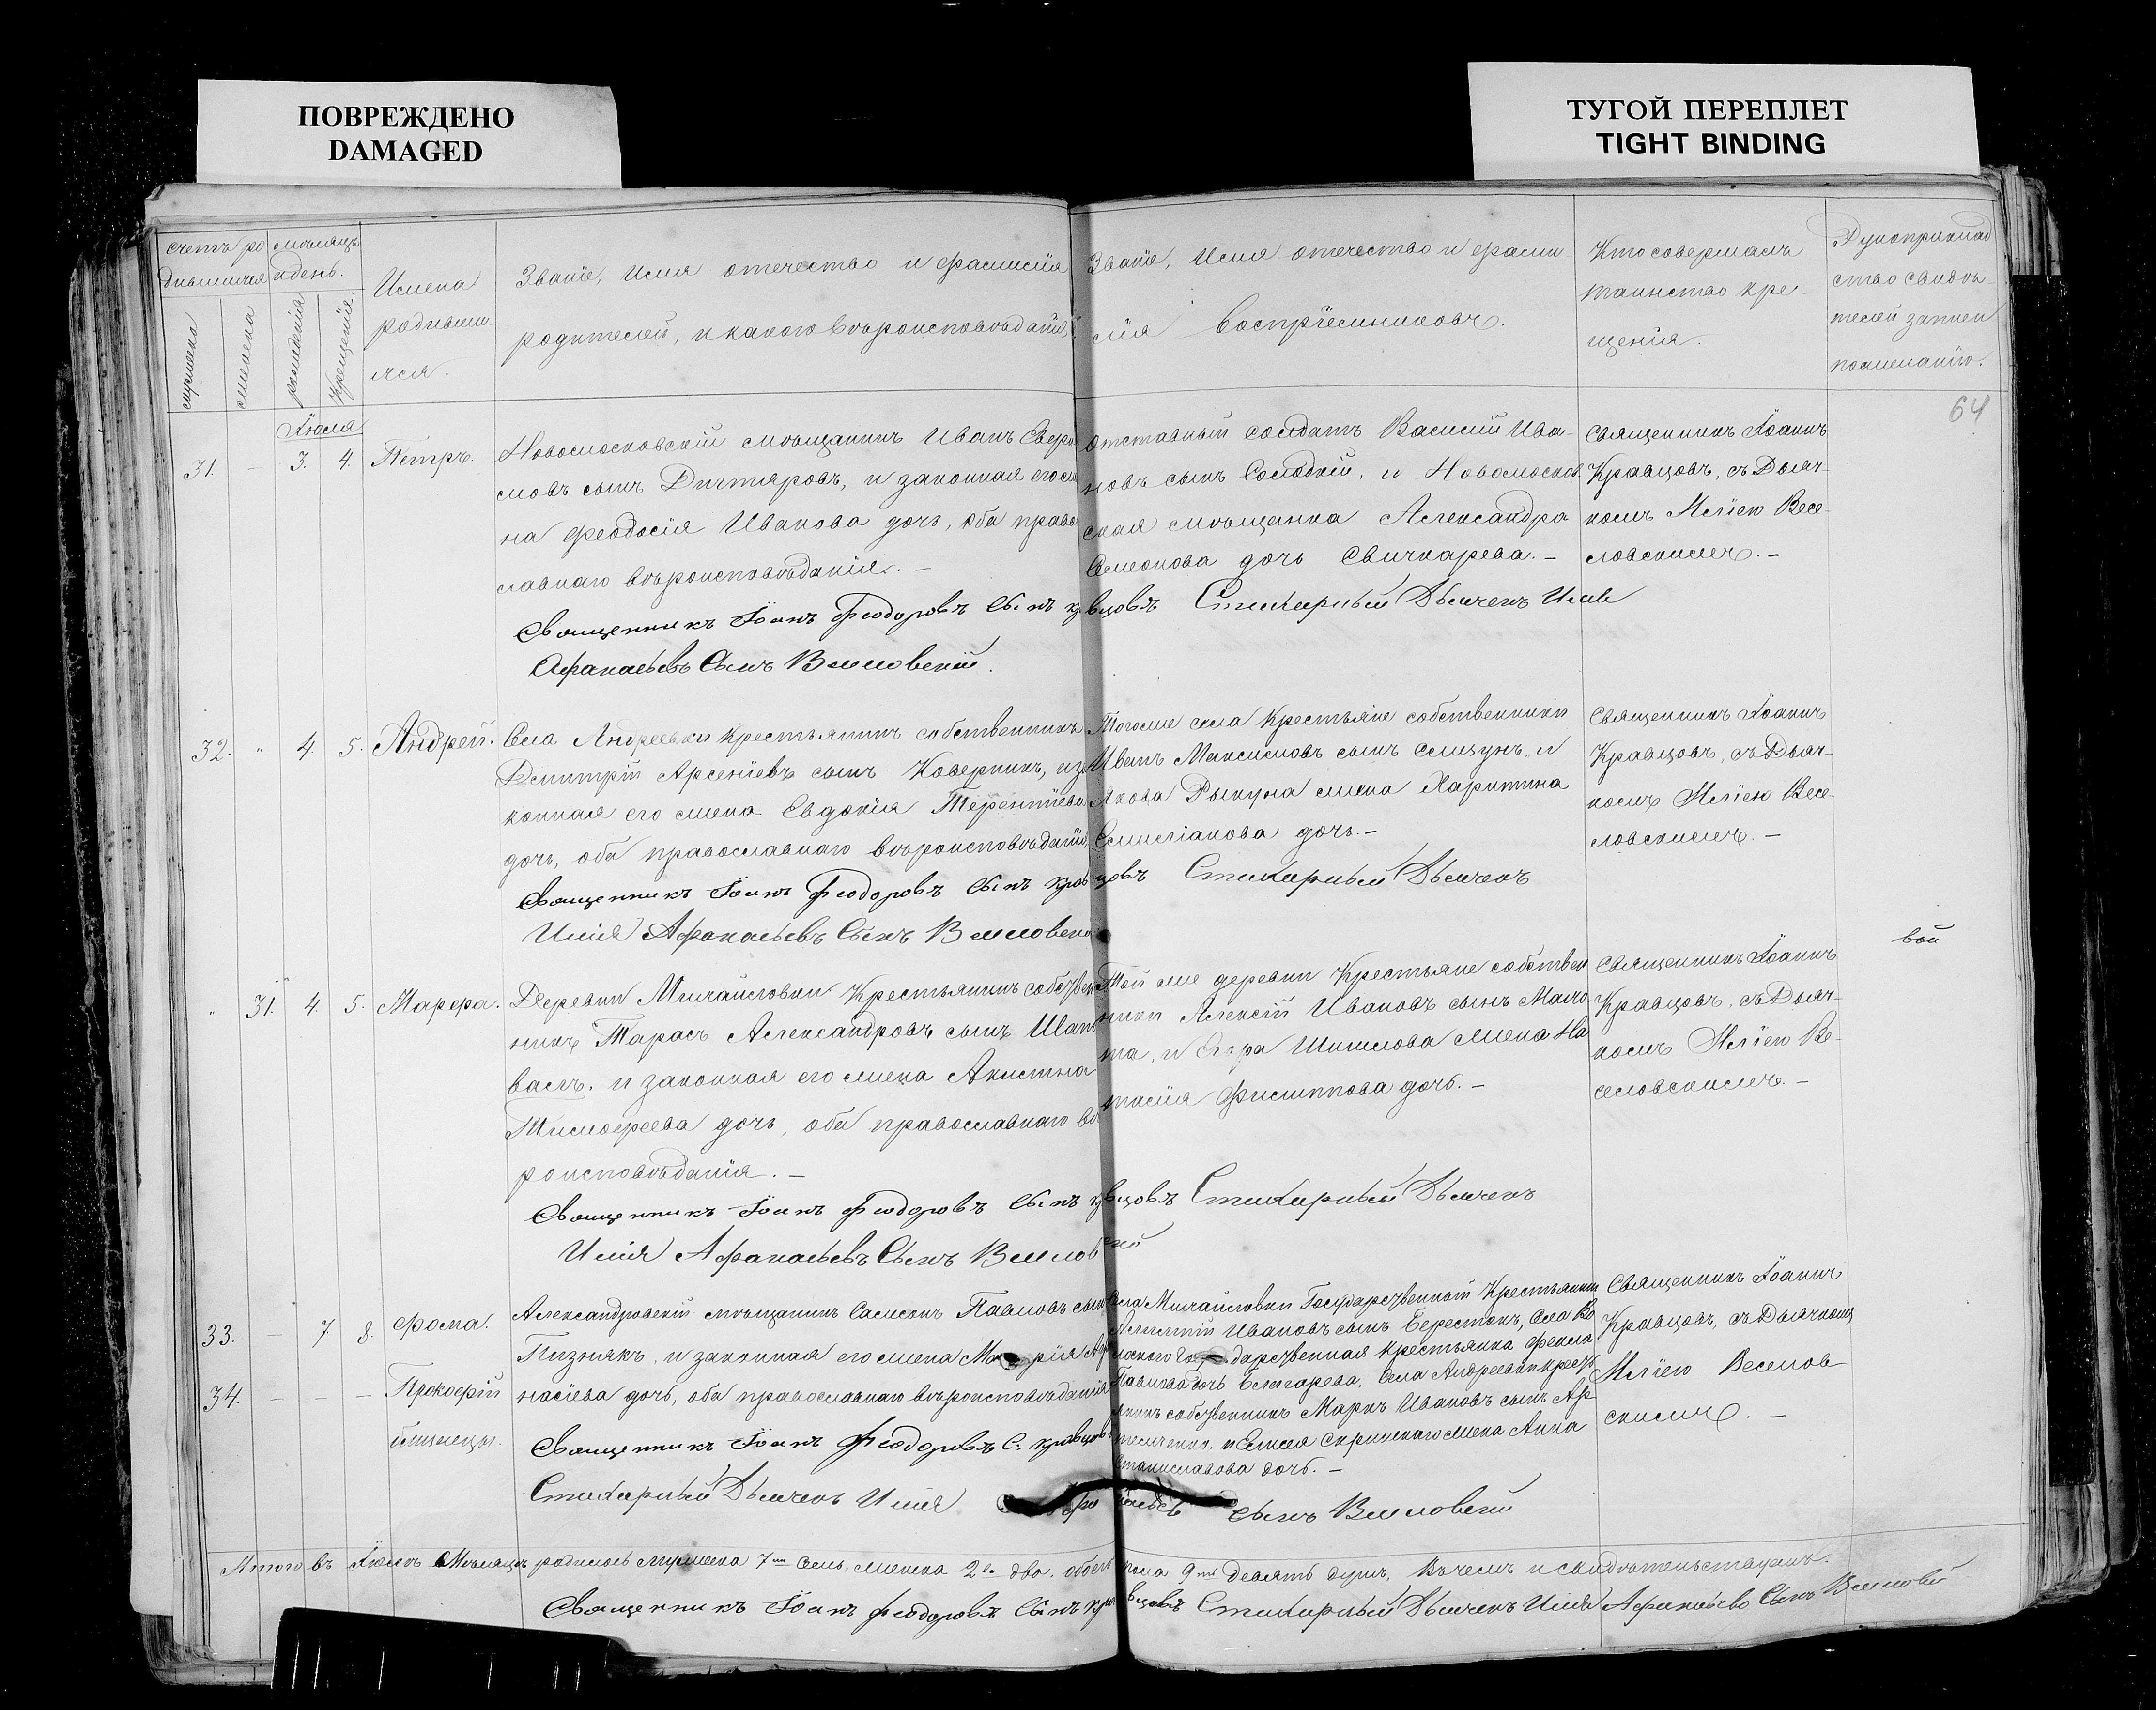 ПОВРЕЖДЕНО
DAMAGED
ТУГОЙ ПЕРЕПЛЕТ
TIGHT BINDING
Счетъ ро
дившихся
мужеска
женска
Мѣсяцъ
и день.
рожденія
крещенія.
Имена
родивши-
хся.
Званіе, Имя отечество и фамилія
родителей, и какого вѣроисповѣданія
Званіе, Имя отечество и фами-
лія воспріемниковъ.
Кто совершалъ
таинство кре-
щенія.
Рукоприклад
ство свидѣ-
телей записи
по желанію.
64
Іюля
31. - 3. 4. Петръ.
Новомосковскій мѣщанинъ Иванъ
мовъ сынъ Дигтяровъ, и законная его же
на Феодосія Иванова дочь, оба право
славнаго вѣроисповѣданія. -
Отставный солдатъ Василій Ива-
новъ сынъ Солодкій, и Новомосков
ская мѣщанка Александра
Семенова дочь Свичкарева. -
Священникъ Іоаннъ
Кравцовъ, съ Дьяч-
комъ Иліею Весе-
ловскимъ. -
Священникъ Іоанъ Феодоровъ Сынъ Кравцовъ Стихарный Дьячекъ Илія
Афанасьевъ Сынъ Веселовскій.
32. " 4. 5. Андрей.
Села Андреевки крестьянинъ собственникъ
Дмитрій Арсеніевъ сынъ Коверникъ, и за
конная его жена Евдокія Терентіева
дочь, оба православнаго вѣроисповѣданія
Тогоже села Крестьяне собственники
Иванъ Максимовъ сынъ и
Якова жена Харитина
Емиліанова дочь. -
Священникъ Іоаннъ
Кравцовъ, съ Дьяч-
комъ Иліею Весе-
ловскимъ. -
Священникъ Іоанъ Феодоровъ Сынъ Кравцовъ Стихарный Дьячекъ
Илія Афанасьевъ Сынъ Веселовскій
" 31. 4. 5. Марфа.
Деревни Михайловки Крестьянинъ собствен
никъ Тарасъ Александровъ сынъ Шапо
валъ, и законная его жена Акилина
Тимофеева дочь, оба православнаго вѣ
роисповѣданія. -
Той же деревни Крестьяне собствен
ники Алексій Ивановъ сынъ
та, и жена На
талія Филиппова дочь. -
Священникъ Іоаннъ
Кравцовъ, съ Дьяч-
комъ Иліею Ве-
селовскимъ. -
Священникъ Іоанъ Феодоровъ Сынъ Кравцовъ Стихарный Дьячекъ
Илія Афанасьевъ Сынъ Веселовскій
33. - 7 8. Фома.
34. - - - Прокофій
близнецы.
Александровскій мѣщанинъ Семеонъ Павловъ сынъ
Пизнякъ, и законная его жена Марія Афа
насіева дочь, оба православнаго вѣроисповѣданія
Села Михайловки Государственный Крестьянинъ
Ивановъ сынъ Берестокъ, Села
Государственная крестьянка Фекла
Павлова дочь Села Андреевки кресть
янинъ собственникъ Маркъ Ивановъ сынъ Ар
теменко, и жена Анна
Станиславова дочь. -
Священникъ Іоаннъ
Кравцовъ, съ Дьячкомъ
Иліею Веселов
скимъ. -
Священникъ Іоанъ Феодоровъ С. Кравцовъ
Стихарный Дьячекъ Илія Афанасьевъ Сынъ Веселовскій
Итого въ Іюлѣ Мѣсяцѣ родилось мужеска 7мь семь, женска 2е два, обоего пола 9ть девять душъ. Въ чемъ и свидѣтельствуемъ.
Священникъ Іоанъ Феодоровъ Сынъ Кравцовъ Стихарный Дьячекъ Илія Афанасьевъ Сынъ Веселовскій